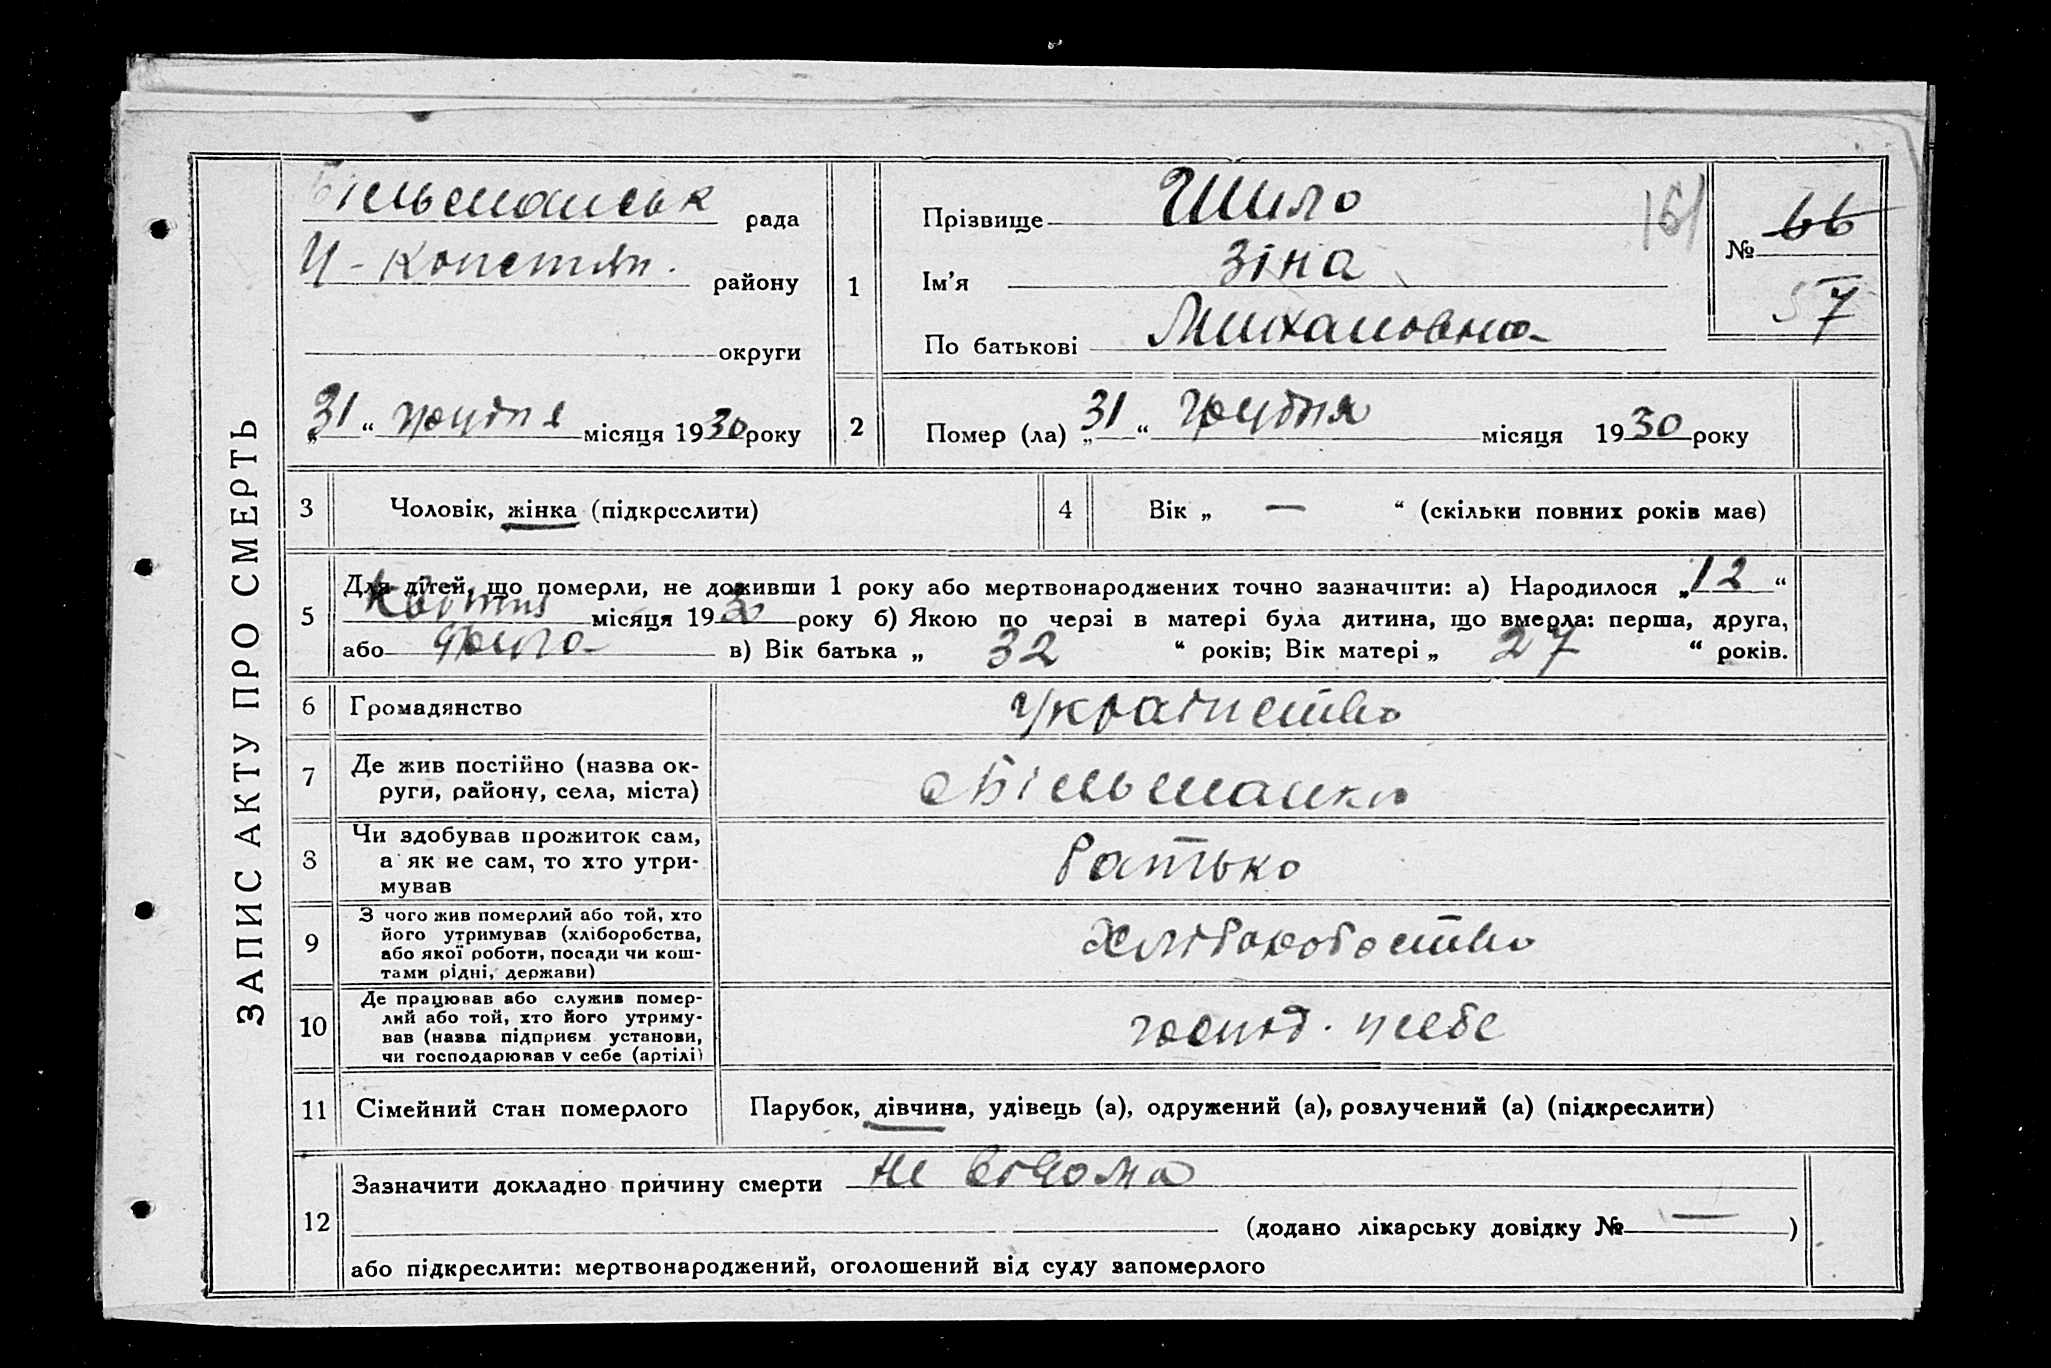 ЗАПИС АКТУ ПРО СМЕРТЬ
Більманськ рада
Ц-Констян. району
округи
„31“ грудня місяця 1930 року
1
Прізвище Шило
161
Ім'я Зіна
По батькові Михайловна
№ 66
57
2
Помер (ла) „31“ грудня місяця 1930 року
3
Чоловік, жінка (підкреслити)
4
Вік „ — “ (скільки повних років має)
5
Для дітей, що померли, не доживши 1 року або мертвонароджених точно зазначити: а) Народилося „12“
Квітня місяця 1930 року б) Якою по черзі в матері була дитина, що вмерла: перша, друга,
або друга в) Вік батька „ 32 “ років; Вік матері „ 27 “ років.
6
Громадянство
Українство
7
Де жив постійно (назва ок-
руги, району, села, міста)
с Більманка
8
Чи здобував прожиток сам,
а як не сам, то хто утри-
мував
батько
9
З чого жив померлий або той, хто
його утримував (хліборобства,
або якої роботи, посади чи кош-
тами рідні, держави)
Хліборобство
10
Де працював або служив помер-
лий або той, хто його утриму-
вав (назва підприєм установи,
чи господарював у себе (артілі)
господ. у себе
11
Сімейний стан померлого
Парубок, дівчина, удівець (а), одружений (а), розлучений (а) (підкреслити)
12
Зазначити докладно причину смерти не відома
(додано лікарську довідку № — )
або підкреслити: мертвонароджений, оголошений від суду запомерлого